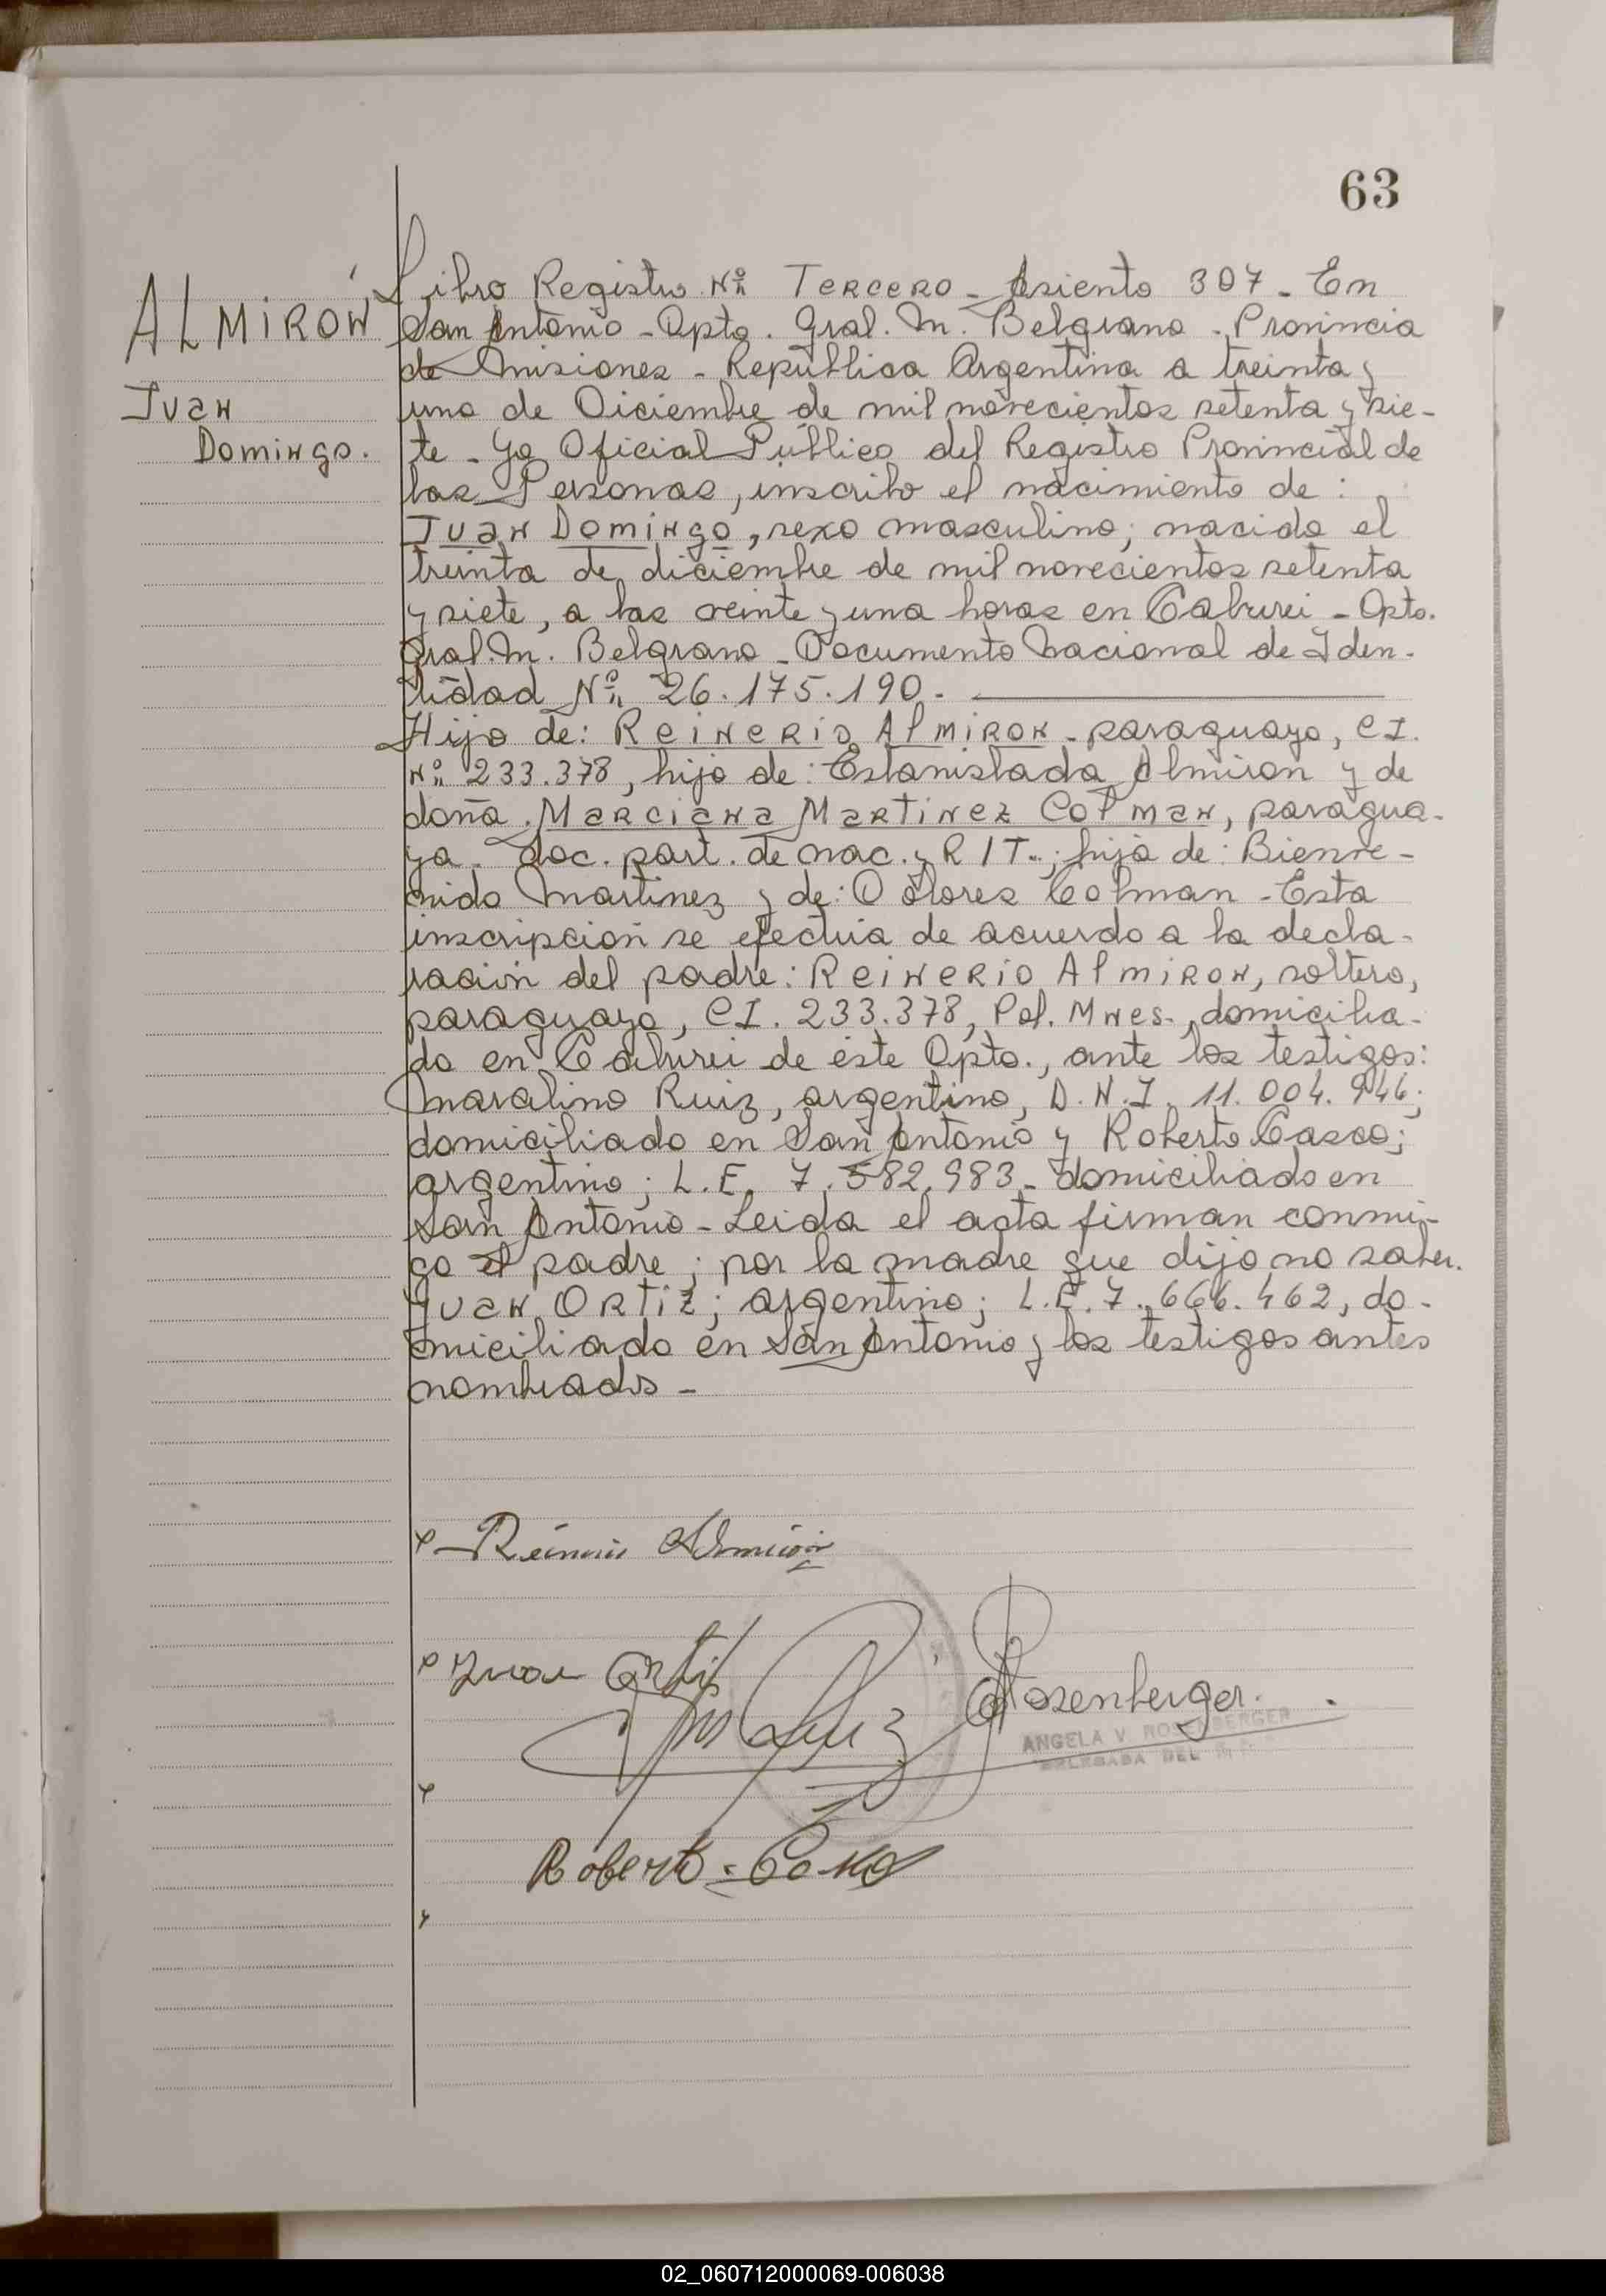 63
ALMIRÓN
Juan
Domingo.
Libro Registro Nº Tercero - Asiento 307 - En
San Antonio - Dpto. Gral. M. Belgrano - Provincia
de Misiones - República Argentina a treinta y
uno de Diciembre de mil novecientos setenta y sie-
te - Yo Oficial Público del Registro Provincial de
las Personas, inscribo el nacimiento de :
Juan Domingo, sexo masculino; nacido el
treinta de diciembre de mil novecientos setenta
y siete, a las veinte y una horas en Caburei - Dpto.
Gral. M. Belgrano - Documento Nacional de Iden-
tidad Nº 26.175.190.-
Hijo de: Reinerio Almiron - paraguayo, CI.
Nº 233.378, hijo de: Estanislada Almiron y de
doña Marciana Martinez Colman, paragua-
ya - doc. part. de nac. y R I T.; hija de: Bienve-
nido Martinez y de: Dolores Colman - Esta
inscripción se efectúa de acuerdo a la decla-
ración del padre: Reinerio Almiron, soltero,
paraguayo, CI. 233.378, Pol. Mnes., domicilia-
do en Caburei de éste Dpto., ante los testigos:
Marcelino Ruiz, argentino, D.N.I. 11.004.946;
domiciliado en San Antonio y Roberto Casco;
argentino; L.E. 7.582.983 - domiciliado en
San Antonio - Leida el acta firman conmi-
go el padre; por la madre que dijo no saber.
Juan Ortiz; argentino; L.E. 7.666.462, do-
miciliado en San Antonio y los testigos antes
nombrados -
Almirón
Juan Ortiz
Ruiz
Rosenberger.
ANGELA V. ROSENBERGER
DELEGADA DEL
Roberto Casco
02_060712000069-006038